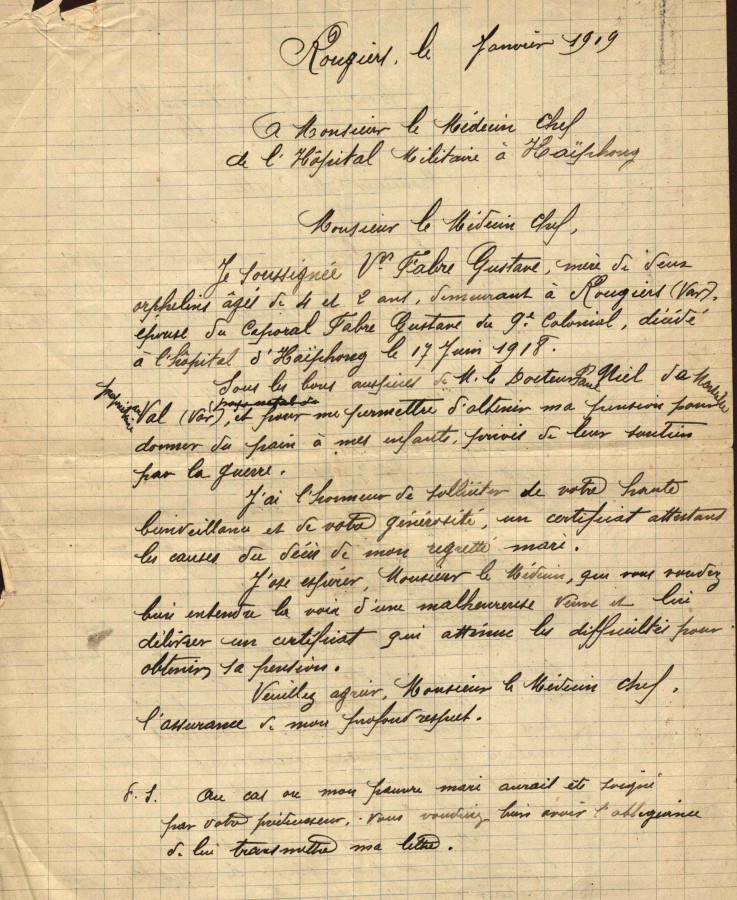 Rougiers, le Janvier 1919
A Monsieur le Médecin Chef
de l'Hôpital Militaire à Haïphong
Monsieur le Médecin Chef,
Je soussignée Vve Fabre Gustave, mère de deux
orphelins âgés de 4 et 2 ans, demeurant à Rougiers (Var),
épouse du Caporal Fabre Gustave du 9e Colonial, décédé
à l'hôpital d'Haïphong le 17 Juin 1918.
Sous les bons auspices de M. le Docteur Paul
propriétaire
Val (Var), et pour me permettre d'obtenir ma pension pour
donner du pain à mes enfants, privés de leur soutien
par la guerre.
J'ai l'honneur de solliciter de votre haute
bienveillance et de votre générosité, un certificat attestant
les causes du décès de mon regretté mari.
J'ose espérer, Monsieur le Médecin, que vous voudrez
bien entendre la voix d'une malheureuse veuve et lui
délivrer un certificat qui atténue les difficultés pour
obtenir sa pension.
Veuillez agréer, Monsieur le Médecin Chef,
l'assurance de mon profond respect.
P.S. Au cas ou mon pauvre mari aurait été soigné
par votre prédécesseur, vous voudriez bien avoir l'obligeance
de lui transmettre ma lettre.